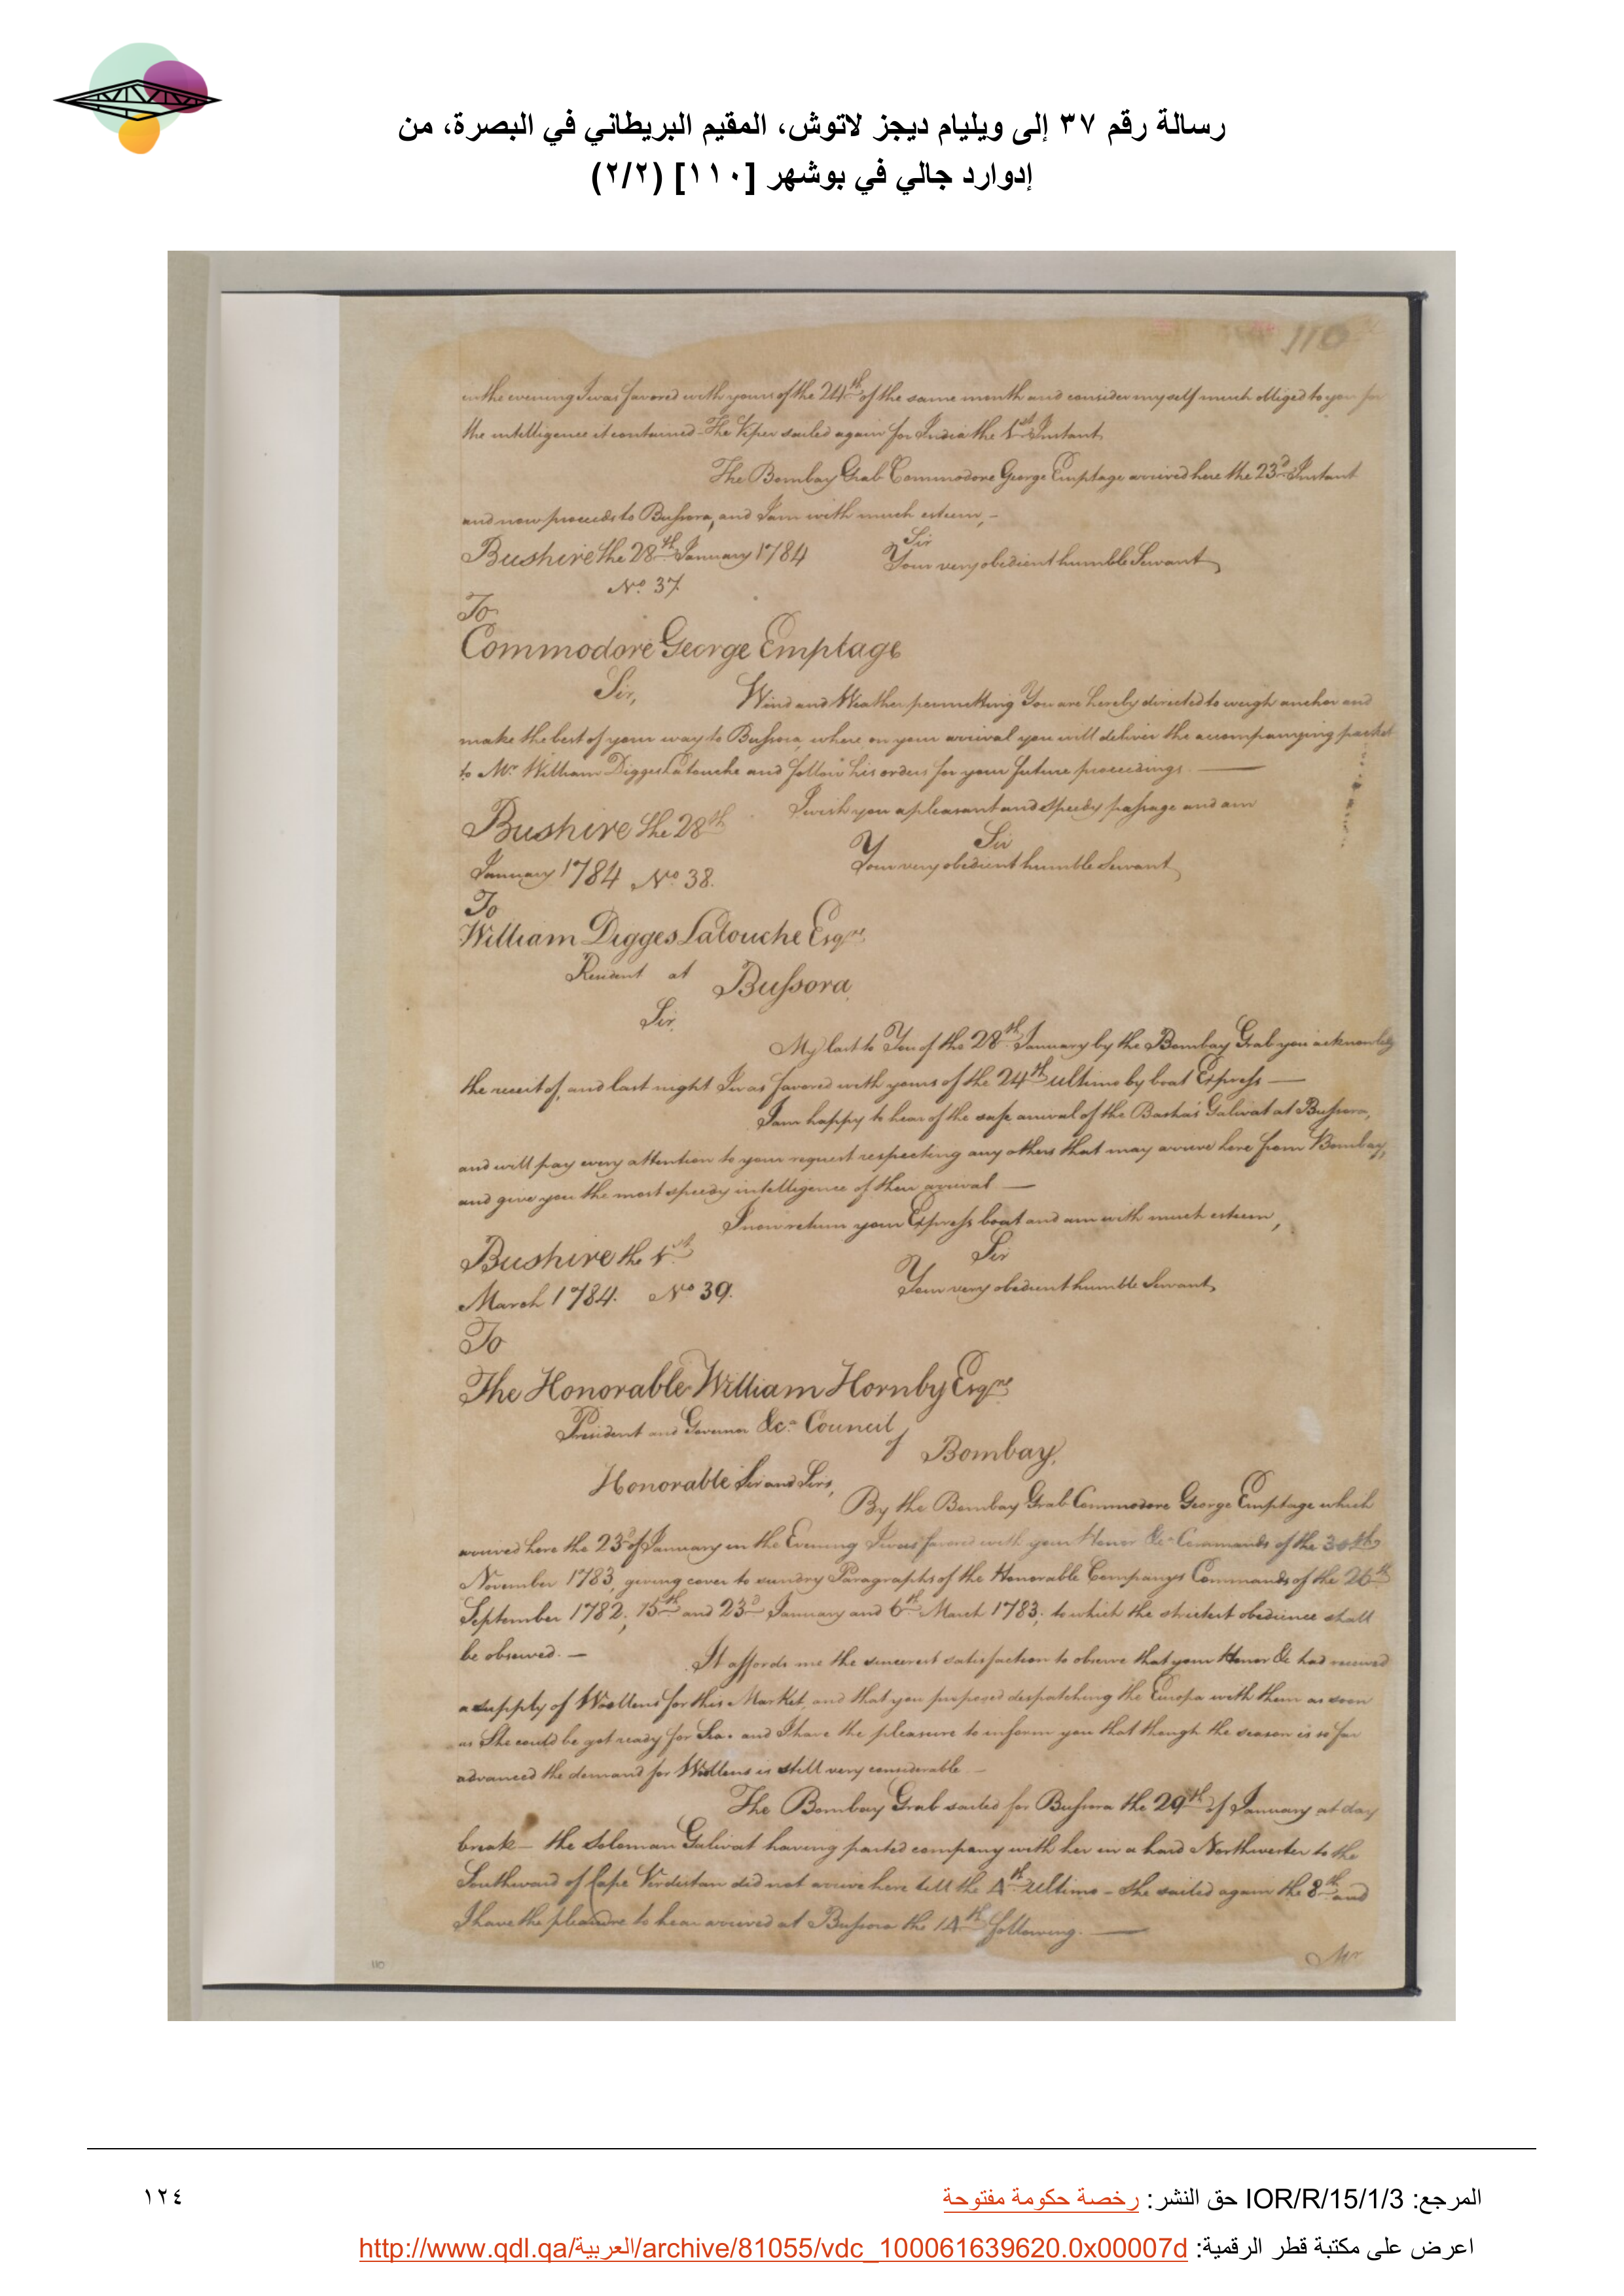 رسالة رقم ٣٧ إلى ويليام ديجز لاتوش، المقيم البريطاني في البصرة، من
إدوارد جالي في بوشهر [١١٠] (٢/٢)
110
in the evening I was favored with yours of the 24th of the same month and consider myself much obliged to you for
the intelligence it contained - The Viper sailed again for India the 1st Instant,
The Bombay Grab Commodore George Emptage arrived here the 23d Instant
and now proceeds to Bussora, and I am with much esteem, -
Sir
Bushire the 28th January 1784 Your very obedient humble Servant,
No. 37
To
Commodore George Emptage
Sir, Wind and Weather permitting You are hereby directed to weigh anchor and
make the best of your way to Bussora, where on your arrival you will deliver the accompanying packet
to Mr. William Digges Latouche and follow his orders for your future proceedings. —
I wish you a pleasant and speedy passage and am
Bushire the 28th Sir
January 1784 No. 38. Your very obedient humble Servant,
To
William Digges Latouche Esqre.
Resident at Bussora
Sir,
My last to You of the 28th January by the Bombay Grab you acknowledg
the receit of, and last night I was favored with yours of the 24th ultimo by boat Express —
I am happy to hear of the safe arrival of the Basha's Galivat at Bussora,
and will pay every attention to your request respecting any others that may arrive here from Bombay,
and give you the most speedy intelligence of their arrival —
I now return your Express boat and am with much esteem,
Bushire the 1st Sir
March 1784. No. 39. Your very obedient humble Servant,
To
The Honorable William Hornby Esqre.
President and Governor &ca. Council
of Bombay,
Honorable Sir and Sirs,
By the Bombay Grab Commodore George Emptage which
arrived here the 23d of January in the Evening I was favored with your Honor &c Commands of the 30th
November 1783, giving cover to sundry Paragraphs of the Honorable Companys Commands of the 26th
September 1782, 15th and 23d January and 6th March 1783; to which the strictest obedience shall
be observed. — It affords me the sincerest satisfaction to observe that your Honor &c had received
a supply of Woollens for this Market and that you proposed despatching the Europa with them as soon
as She could be got ready for Sea. and I have the pleasure to inform you that though the season is so far
advanced the demand for Woollens is still very considerable —
The Bombay Grab sailed for Bussora the 29th of January at day
break - the Soloman Galivat having parted company with her in a hard Northwester to the
Southward of Cape Verdistan did not arrive here till the 4th Ultimo - She sailed again the 8th and
I have the pleasure to hear arrived at Bussora the 14th following. —
Mr.
110
المرجع: IOR/R/15/1/3 حق النشر: رخصة حكومة مفتوحة
١٢٤
اعرض على مكتبة قطر الرقمية: http://www.qdl.qa/العربية/archive/81055/vdc_100061639620.0x00007d